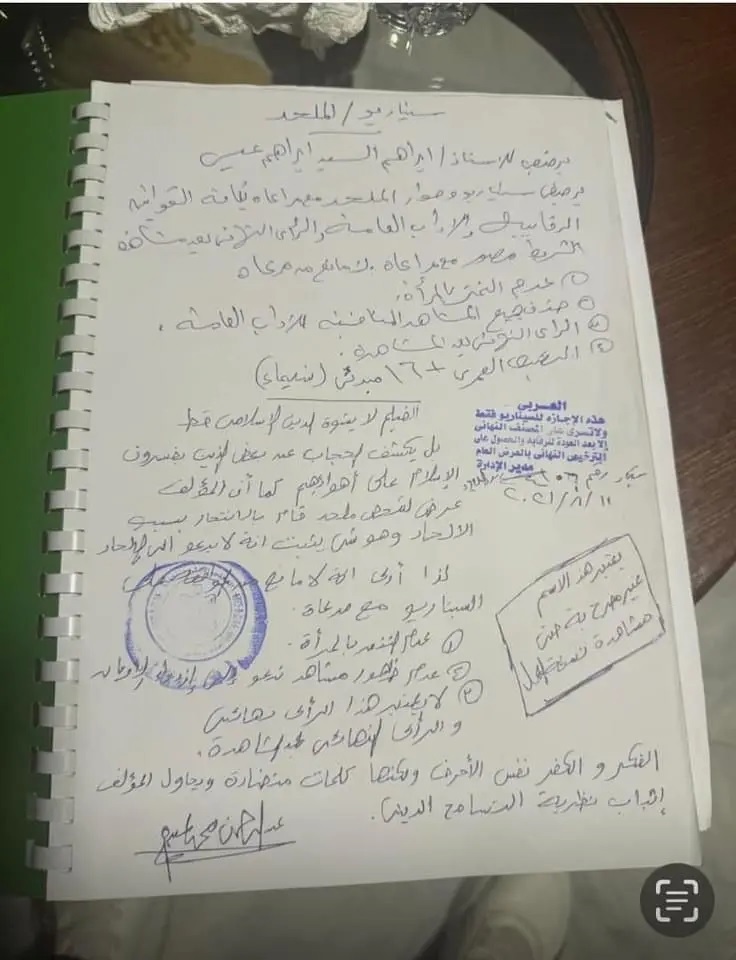 سيناريو / الملحد
يرخص للأستاذ / ابراهيم السيد ابراهيم عيسى
يرخص سيناريو وحوار الملحد مع مراعاة كافة القوانين
الرقابية والآداب العامة والرأى النهائى بعد مشاهدة
الشريط مصور مع مراعاة لا مانع مع مراعاة
① عدم التنمر بالمرأة.
② حذف جميع المشاهد المنافية للآداب العامة.
③ الرأى النهائى بعد المشاهدة.
④ التصنيف العمرى +١٦ مبدئى (سينمائى)
العربى
هذه الإجازه للسيناريو فقط
ولاتسرى على المصنف النهائى
إلا بعد العودة للرقابه والحصول على
الترخيص النهائى بالعرض العام
مدير الإدارة
رقم ٥٦
٢٠٢١/٨/١٠
الفيلم لا يشوة الدين الإسلامى قط
بل يكشف الحجاب عن بعض الذين يفسرون
الإسلام على أهوائهم كما أن المؤلف
عرض لشخص ملحد قام بالانتحار بسبب
الالحاد وهو شئ يثبت انة لا يدعو الى الإلحاد
لذا أرى انة لا مانع من الموافقة على
السيناريو مع مرعاة.
① عدم التنمر بالمرأة.
② عدم ظهور مشاهد تدعو إلى إزدراء الأديان
③ لا يعتبر هذا الرأى نهائى
و الرأى النهائى بعد المشاهدة.
يعتبر هذ الاسم
غير مصرح بة حتى
مشاهدة نسخة العمل
الفكر و الكفر نفس الأحرف ولكنها كلمات متضادة ويحاول المؤلف
إثبات نظرية التسامح الدينى.